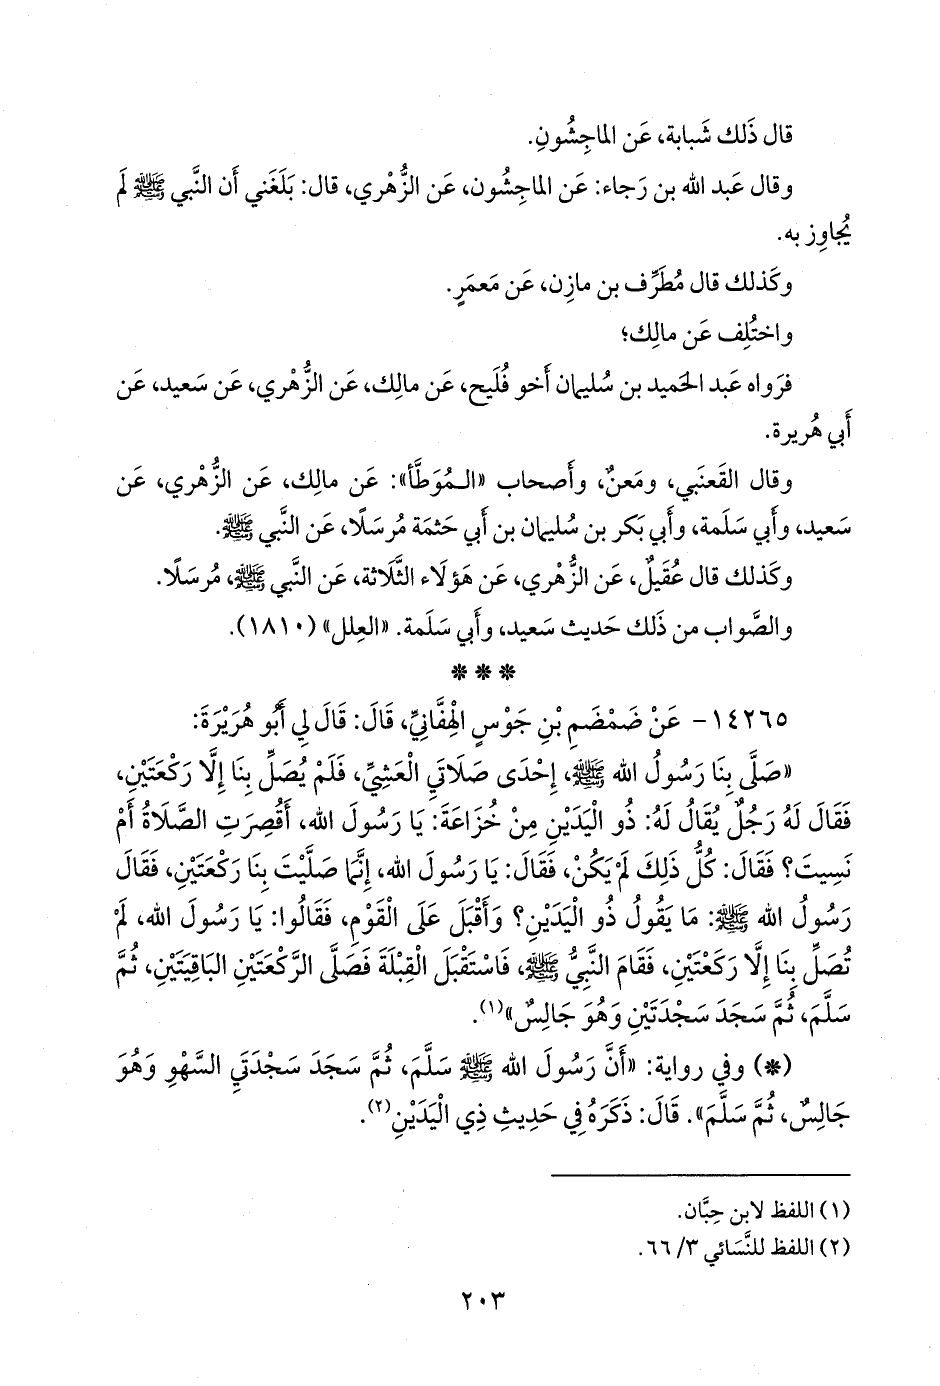 قال ذَلك شَبابة، عَن الماجِشُونِ.
وقال عَبد الله بن رَجاء: عَن الماجِشُون، عَن الزُّهْري، قال: بَلَغَني أَن النَّبي ﷺ لَم
يُجاوِز به.
وكَذلك قال مُطَرِّف بن مازِن، عَن مَعمَرٍ.
واختُلِف عَن مالِك؛
فرَواه عَبد الحَميد بن سُليمان أَخو فُلَيح، عَن مالِك، عَن الزُّهْري، عَن سَعيد، عَن
أَبي هُريرة.
وقال القَعنَبي، ومَعنٌ، وأَصحاب «المُوَطَّأ»: عَن مالِك، عَن الزُّهْري، عَن
سَعيد، وأَبي سَلَمة، وأَبي بَكر بن سُليمان بن أَبي حَثمَة مُرسَلًا، عَن النَّبي ﷺ.
وكَذلك قال عُقَيلٌ، عَن الزُّهْري، عَن هَؤلَاء الثَّلَاثة، عَن النَّبي ﷺ، مُرسَلًا.
والصَّواب من ذَلك حَديث سَعيد، وأَبي سَلَمة. «العِلل» (١٨١٠).
* * *
١٤٢٦٥- عَنْ ضَمْضَمِ بْنِ جَوْسٍ الْهِفَّانِيِّ، قَالَ: قَالَ لِي أَبُو هُرَيْرَةَ:
«صَلَّى بِنَا رَسُولُ الله ﷺ، إِحْدَى صَلَاتَيِ الْعَشِيِّ، فَلَمْ يُصَلِّ بِنَا إِلَّا رَكْعَتَيْنِ،
فَقَالَ لَهُ رَجُلٌ يُقَالُ لَهُ: ذُو الْيَدَيْنِ مِنْ خُزَاعَةَ: يَا رَسُولَ الله، أَقُصِرَتِ الصَّلَاةُ أَمْ
نَسِيتَ؟ فَقَالَ: كُلُّ ذَلِكَ لَمْ يَكُنْ، فَقَالَ: يَا رَسُولَ الله، إِنَّمَا صَلَّيْتَ بِنَا رَكْعَتَيْنِ، فَقَالَ
رَسُولُ الله ﷺ: مَا يَقُولُ ذُو الْيَدَيْنِ؟ وَأَقْبَلَ عَلَى الْقَوْمِ، فَقَالُوا: يَا رَسُولَ الله، لَمْ
تُصَلِّ بِنَا إِلَّا رَكْعَتَيْنِ، فَقَامَ النَّبِيُّ ﷺ، فَاسْتَقْبَلَ الْقِبْلَةَ فَصَلَّى الرَّكْعَتَيْنِ الْبَاقِيَتَيْنِ، ثُمَّ
سَلَّمَ، ثُمَّ سَجَدَ سَجْدَتَيْنِ وَهُوَ جَالِسٌ»(١).
(*) وفي رواية: «أَنَّ رَسُولَ الله ﷺ سَلَّمَ، ثُمَّ سَجَدَ سَجْدَتَيِ السَّهْوِ وَهُوَ
جَالِسٌ، ثُمَّ سَلَّمَ». قَالَ: ذَكَرَهُ فِي حَدِيثِ ذِي الْيَدَيْنِ(٢).
(١) اللفظ لابن حِبَّان.
(٢) اللفظ للنَّسَائي ٣/ ٦٦.
٢٠٣